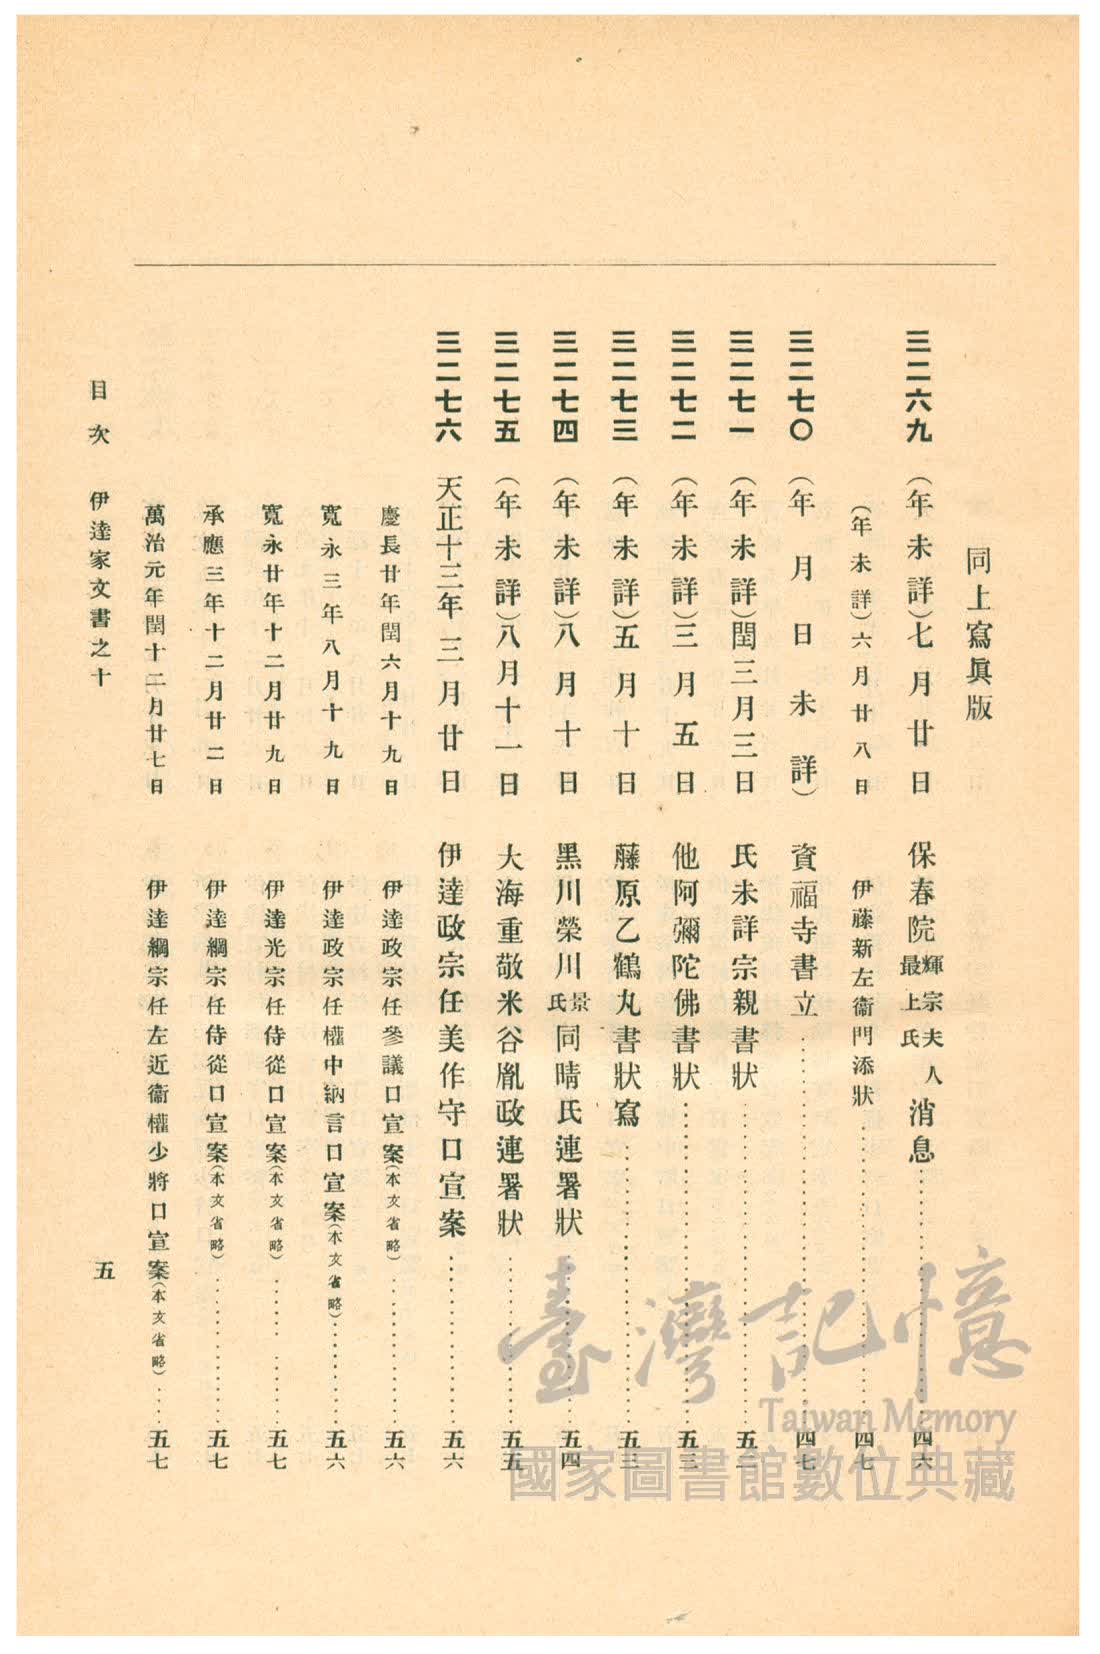 同上寫眞版
三二六九 (年未詳)七月廿日 保春院輝宗夫人最上氏消息 四六
(年未詳)六月廿八日 伊藤新左衞門添狀 四七
三二七〇 (年月日未詳) 資福寺書立 四七
三二七一 (年未詳)閏三月三日 氏未詳宗親書狀
三二七二 (年未詳)三月五日 他阿彌陀佛書狀 五三
三二七三 (年未詳)五月十日 藤原乙鶴丸書狀寫 五三
三二七四 (年未詳)八月十日 黑川榮川景氏同晴氏連署狀 五四
三二七五 (年未詳)八月十一日 大海重敬米谷胤政連署狀 五五
三二七六 天正十三年三月廿日 伊達政宗任美作守口宣案 五六
慶長廿年閏六月十九日 伊達政宗任參議口宣案(本文省略) 五六
寬永三年八月十九日 伊達政宗任權中納言口宣案(本文省略) 五六
寬永廿年十二月廿九日 伊達光宗任侍從口宣案(本文省略) 五七
承應三年十二月廿二日 伊達綱宗任侍從口宣案(本文省略) 五七
萬治元年閏十二月廿七日 伊達綱宗任左近衞權少將口宣案(本文省略) 五七
目次 伊達家文書之十 五
臺灣記憶
Taiwan Memory
國家圖書館數位典藏